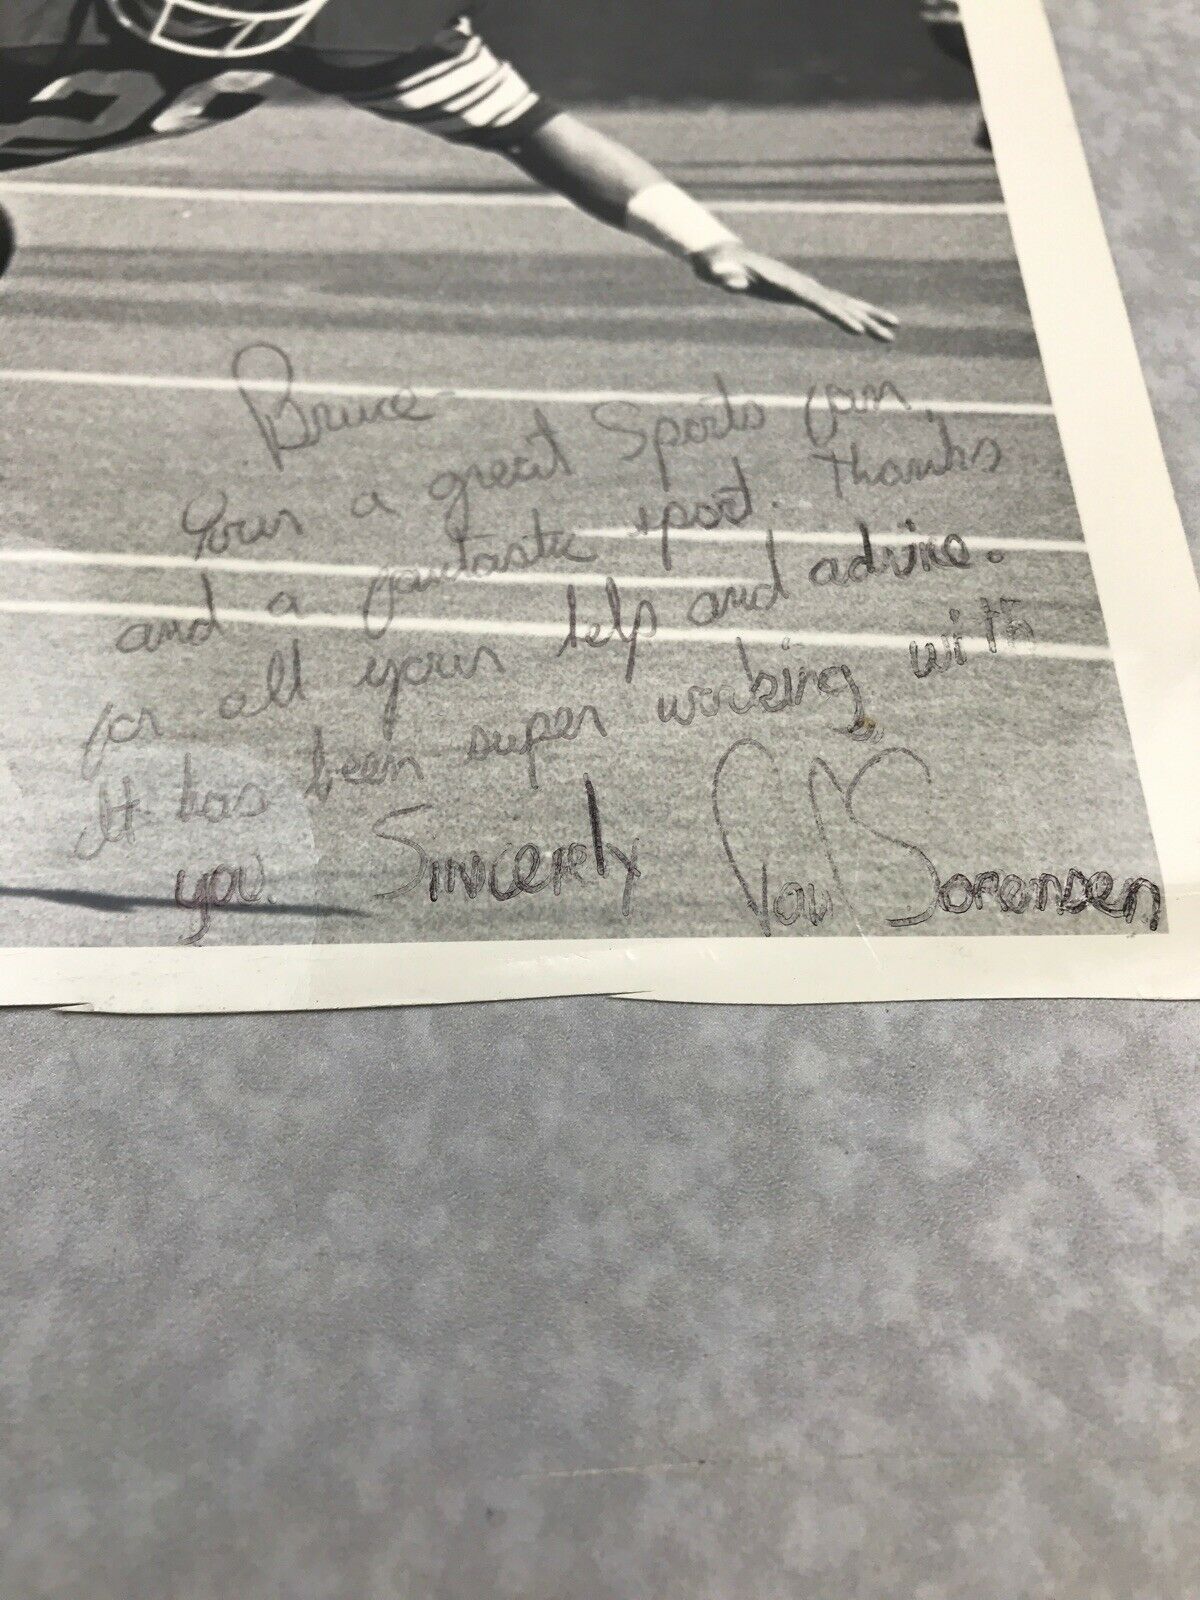 20
Bruce-
Your a great Sports fan,
and a fantastic sport. Thanks
for all your help and advice.
It has been super working with
you. Sincerely Paul Sorensen